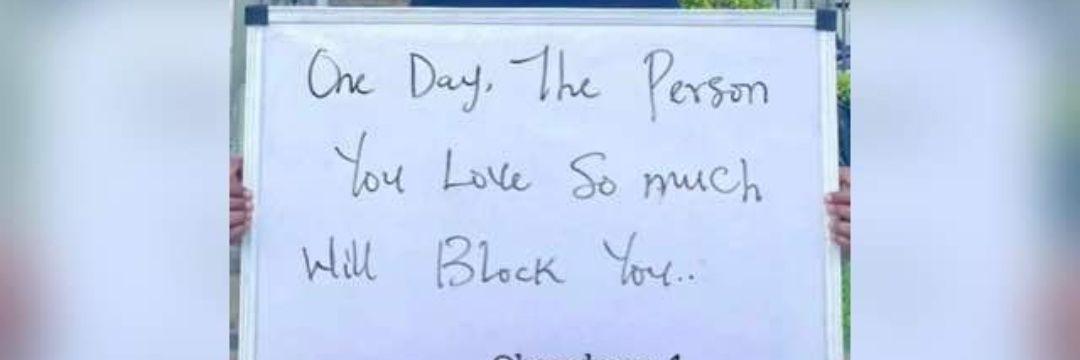 One Day, The Person
You Love So much
Will Block You..